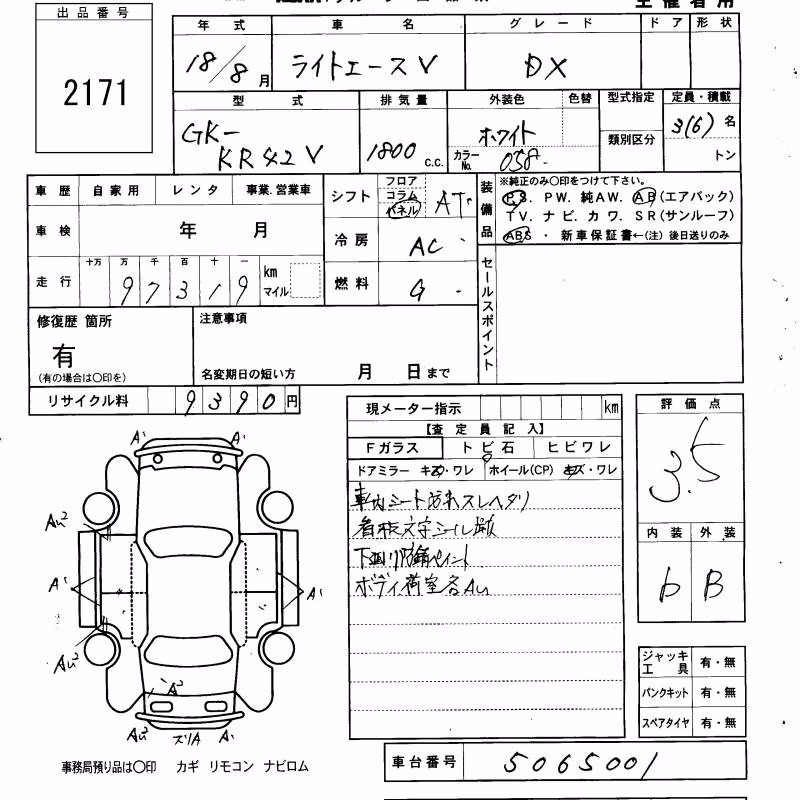 出品番号
2171
年式 車名 グレード ドア 形状
18/8月 ライトエースV DX
型式 排気量 外装色 色替 型式指定 定員・積載
GK-
KR42V
1800 c.c.
ホワイト
カラーNo. 058
類別区分
3(6) 名
トン
車歴 自家用 レンタ 事業.営業車
シフト フロア コラム パネル AT
装備品
※純正のみ〇印をつけて下さい。
P.S. PW. 純AW. AB(エアバック)
TV. ナビ. カワ. SR(サンルーフ)
ABS ・ 新車保証書←(注) 後日送りのみ
車検 年 月
冷房 AC
走行 十万 万 千 百 十 一
97319 km マイル
燃料 G
セールスポイント
修復歴 箇所
有
(有の場合は〇印を)
注意事項
名変期日の短い方 月 日まで
リサイクル料 9390円
現メーター指示 km
【査定員記入】
Fガラス トビ石 ヒビワレ
ドアミラー キズ・ワレ ホイール(CP) キズ・ワレ
車内シート汚れスレヘタリ
看板文字シール跡
下回り防錆ペイント
ボディ荷室各AU
評価点
3.5
内装 外装
b B
A' A'
AU²
A' A'
AU²
A²
AU' ズリA A'
ジャッキ工具 有・無
パンクキット 有・無
スペアタイヤ 有・無
事務局預り品は〇印 カギ リモコン ナビロム
車台番号 5065001